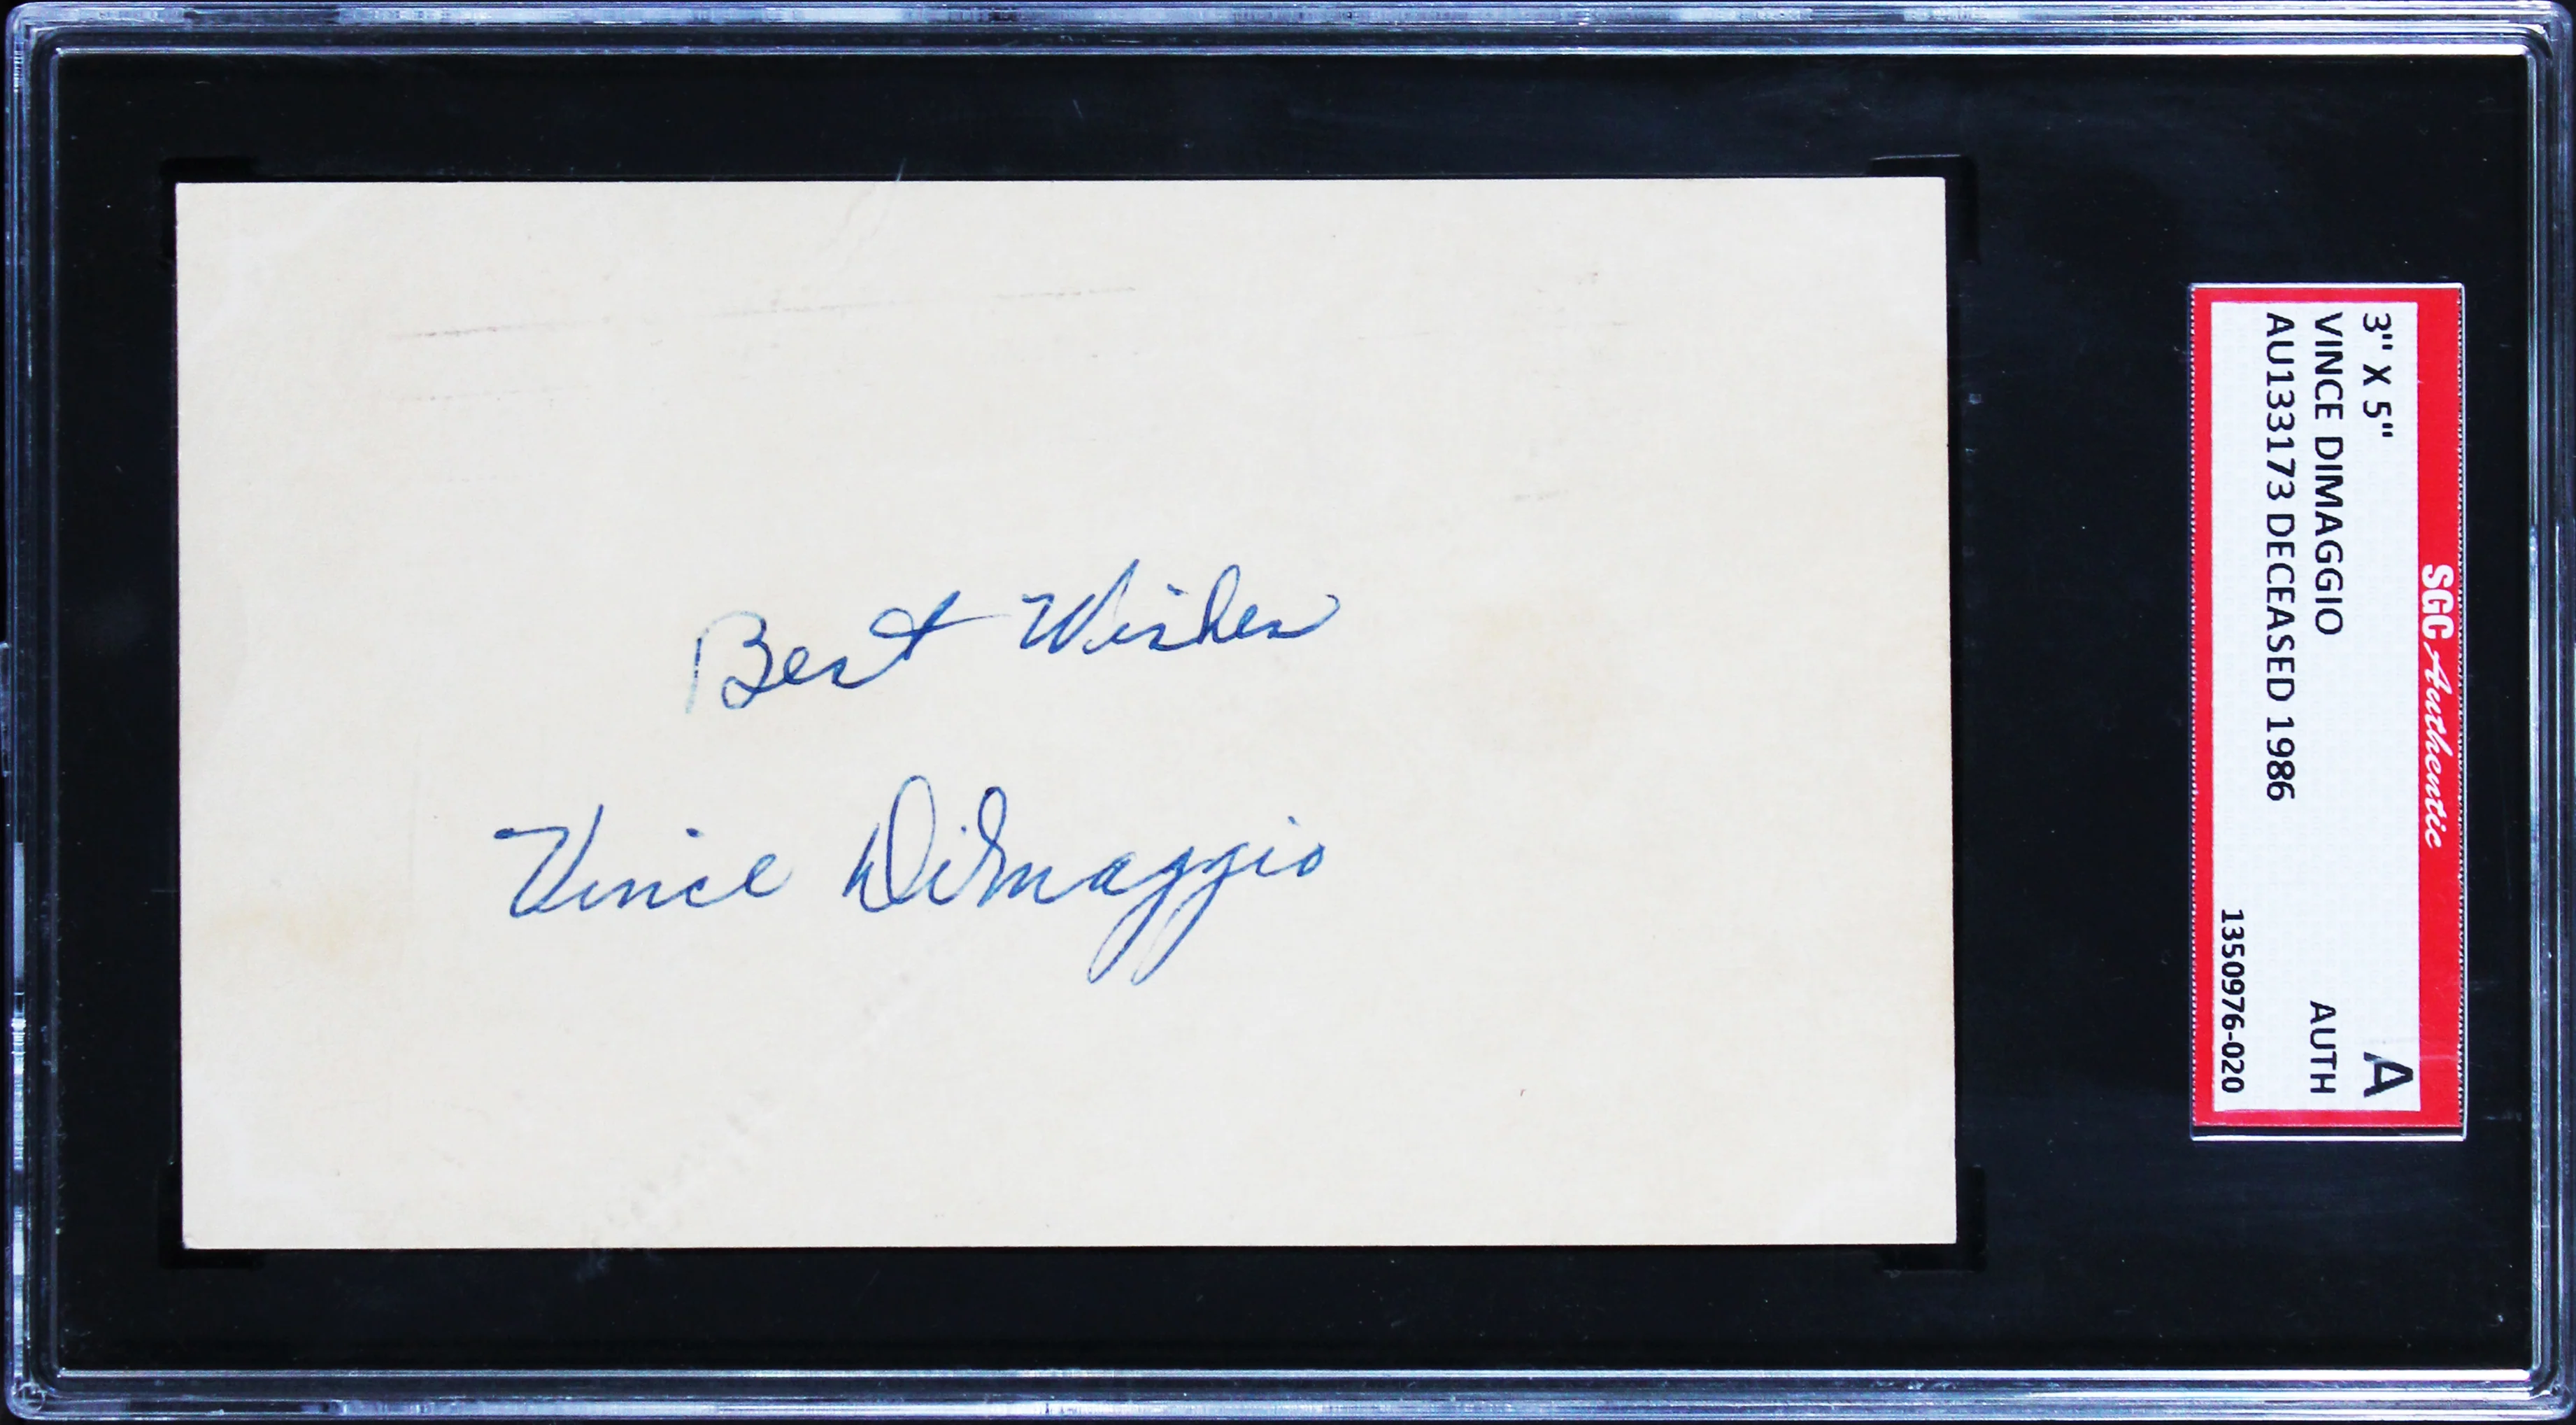 Best Wishes
Vince DiMaggio
SGC Authentic
3" X 5"
A
VINCE DIMAGGIO
AUTH
AU133173 DECEASED 1986
1350976-020